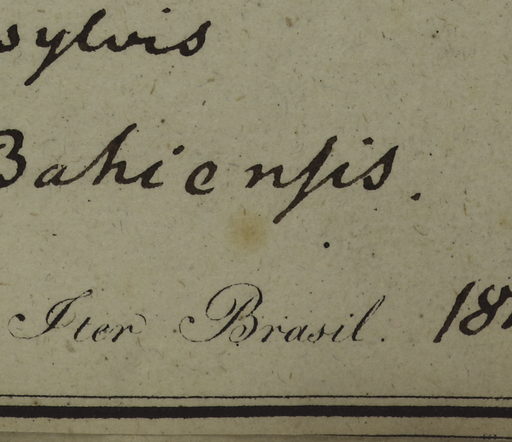 sylvis
Bahiensis.
Iter Brasil. 18